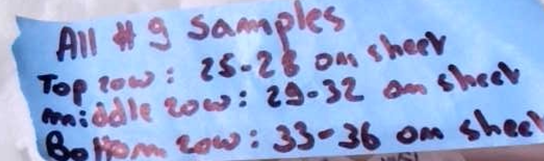 All # 9 Samples
Top row: 25-28 on sheet
middle row: 29-32 on sheet
Bottom row: 33-36 on sheet